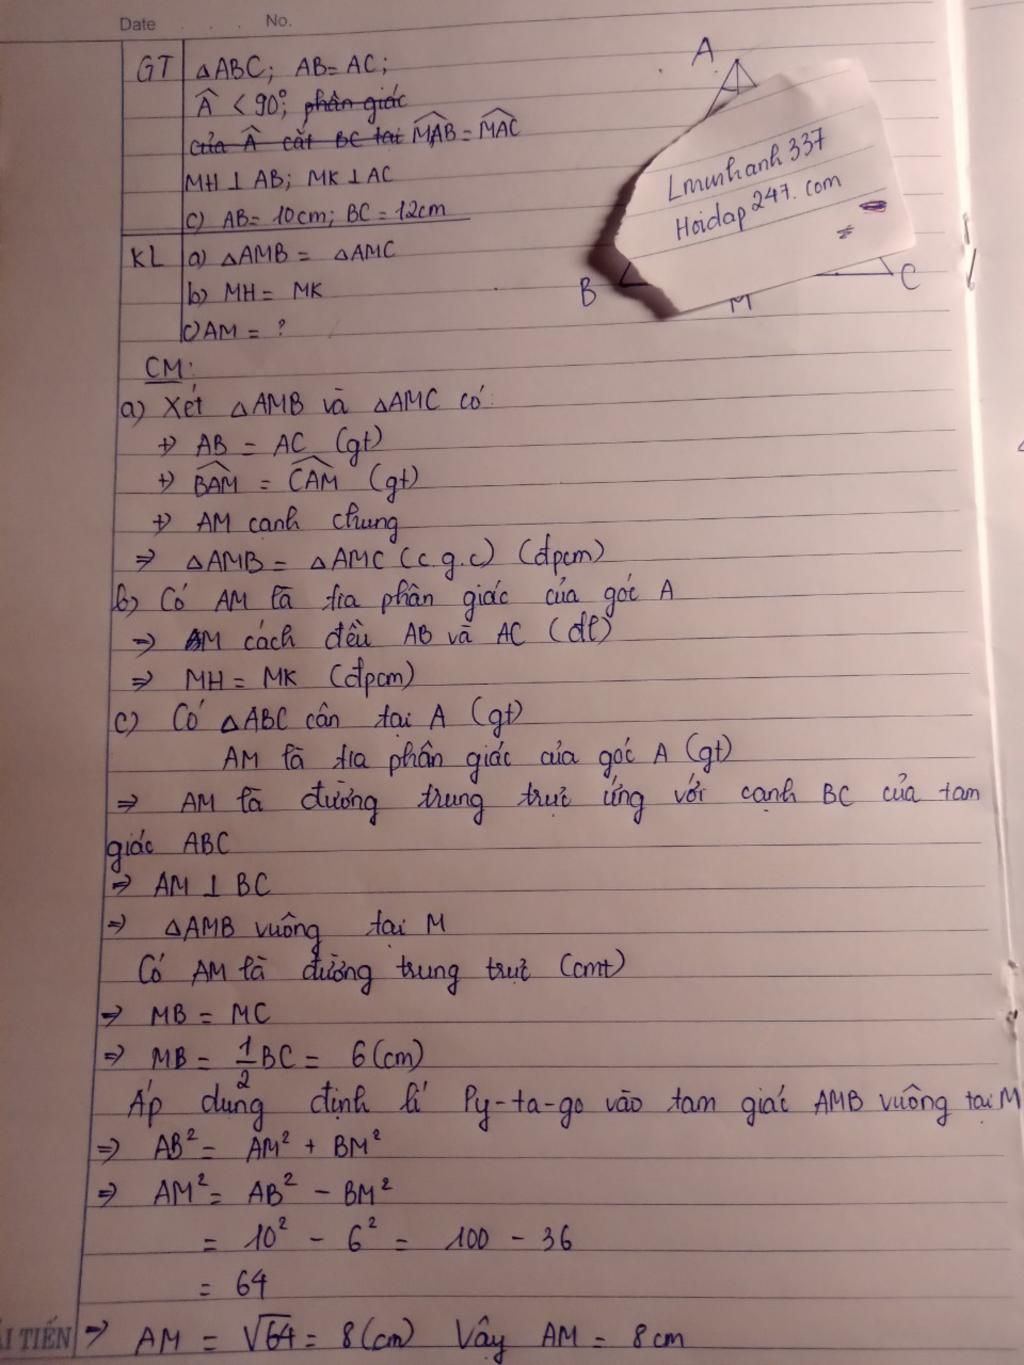 Date . . . No.
GT ΔABC; AB = AC;
Â < 90°; phân giác
của Â cắt BC tại MAB = MAC
MH ⊥ AB; MK ⊥ AC
c) AB = 10cm; BC = 12cm
KL a) ΔAMB = ΔAMC
b) MH = MK
c) AM = ?
A
Lminhanh337
Hoidap247.com
B
M
C
CM:
a) Xét ΔAMB và ΔAMC có:
+) AB = AC (gt)
+) BAM = CAM (gt)
+) AM cạnh chung
⇒ ΔAMB = ΔAMC (c.g.c) (đpcm)
b) Có AM là tia phân giác của góc A
⇒ M cách đều AB và AC (đl)
⇒ MH = MK (đpcm)
c) Có ΔABC cân tại A (gt)
AM là tia phân giác của góc A (gt)
⇒ AM là đường trung trực ứng với cạnh BC của tam
giác ABC
⇒ AM ⊥ BC
⇒ ΔAMB vuông tại M
Có AM là đường trung trực (cmt)
⇒ MB = MC
⇒ MB = 1/2 BC = 6 (cm)
Áp dụng định lí Py-ta-go vào tam giác AMB vuông tại M
⇒ AB² = AM² + BM²
⇒ AM² = AB² - BM²
= 10² - 6² = 100 - 36
= 64
⇒ AM = √64 = 8 (cm) Vậy AM = 8cm
TIẾN